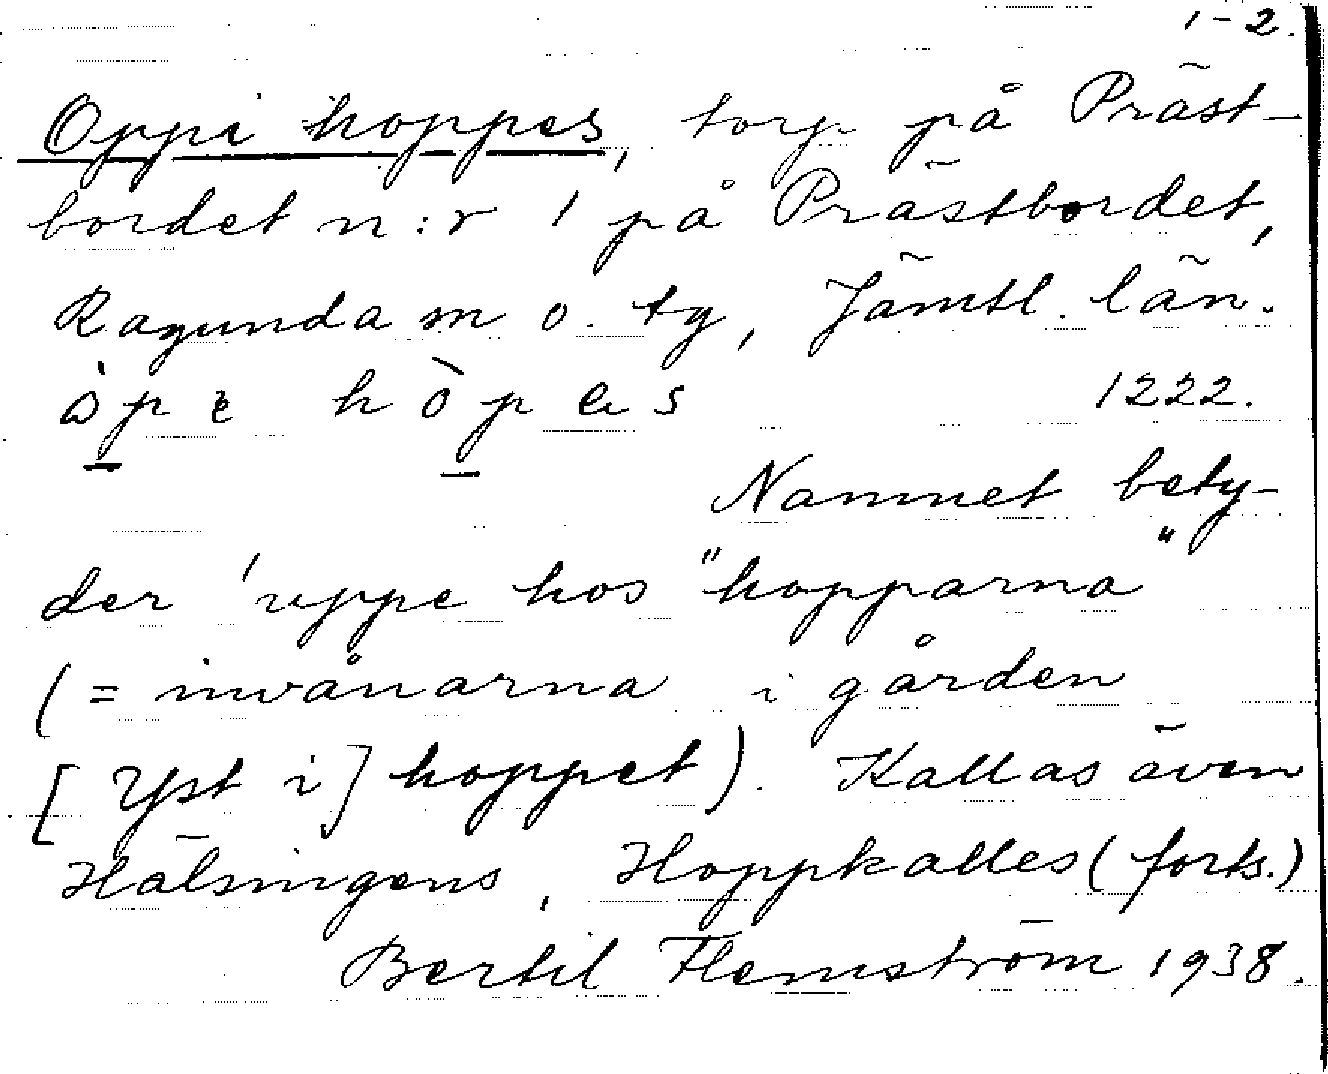 1-2.
Oppi hoppes, torp på Präst-
bordet n:r 1 på Prästbordet,
Ragunda sn o. tg, Jämtl. län.
òpe hòpes 1222.
Namnet bety-
der 'uppe hos "hopparna"
(= invånarna i gården
[Yst i] hoppet). Kallas även
Hälsingens, Hoppkalles (forts.)
Bertil Flemström 1938.